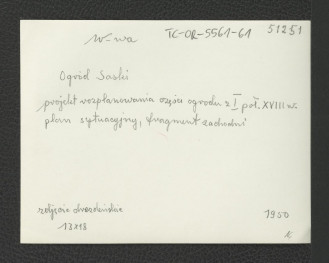 W-wa TC-OR-5561-61 51251
Ogród Saski
projekt rozplanowania części ogrodu z I poł. XVIII w.
plan sytuacyjny, fragment zachodni
zdjęcie drezdeńskie 1950
13x18